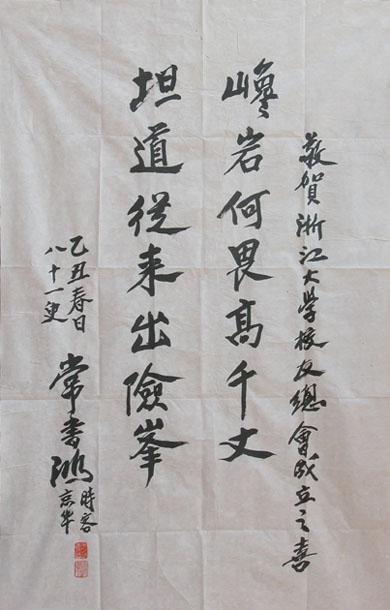 敬賀浙江大學校友總會成立之喜
巉岩何畏高千丈
坦道從来出險峯
乙丑春日
八十一叟
常書鴻
時客
京华